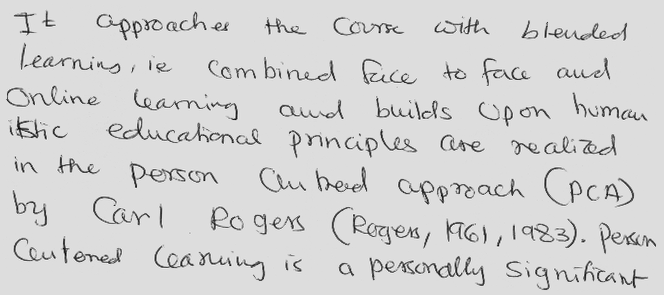 It approaches the Course with blended
learning, ie Combined face to face and
Online learning and builds Upon human
istic educational principles are realized
in the person Centered approach (PCA)
by Carl Rogers (Rogers, 1961, 1983). Person
Centered learning is a personally significant